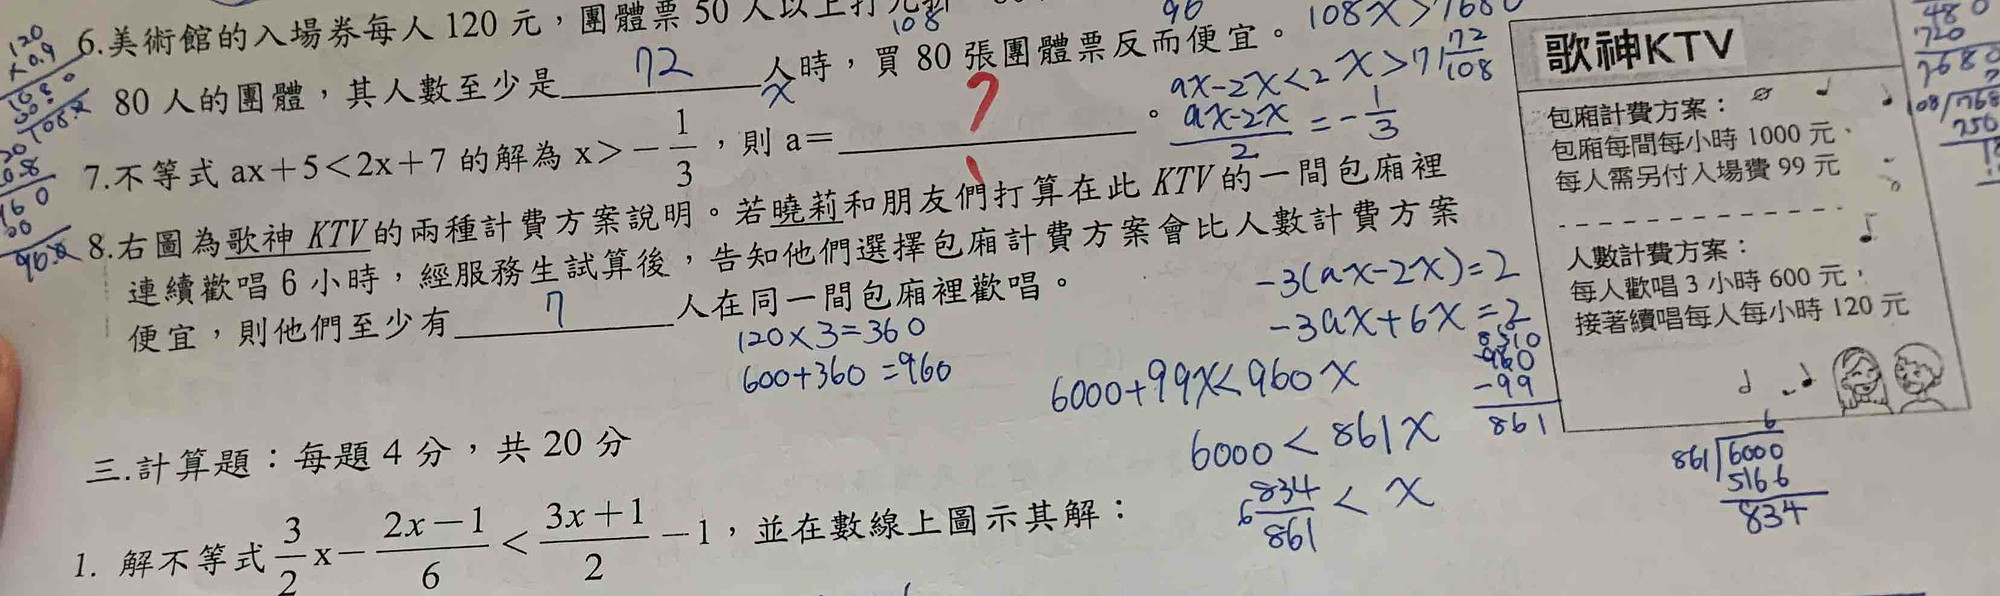 6.美術館的入場券每人 120 元,團體票 50 人以上打九折
108
96
108x>7680
80 人的團體,其人數至少是 72 人時,買 80 張團體票反而便宜。
x
x>71 72/108
7.不等式 ax+5<2x+7 的解為 x>-1/3,則 a= ? 。
ax-2x<2
(ax-2x)/2=-1/3
-3(ax-2x)=2
-3ax+6x=2
8.右圖為歌神 KTV的兩種計費方案說明。若曉莉和朋友們打算在此 KTV的一間包廂裡
連續歡唱 6 小時,經服務生試算後,告知他們選擇包廂計費方案會比人數計費方案
便宜,則他們至少有 7 人在同一間包廂裡歡唱。
120×3=360
600+360=960
6000+99x<960x
6000<861x
6 834/861<x
960
-99
861
歌神KTV
包廂計費方案:
包廂每間每小時 1000 元、
每人需另付入場費 99 元
人數計費方案:
每人歡唱 3 小時 600 元,
接著續唱每人每小時 120 元
6
861 6000
5166
834
120
×0.9
480
720
7680
三.計算題:每題 4 分,共 20 分
1. 解不等式 3/2 x-(2x-1)/6<(3x+1)/2-1,並在數線上圖示其解: